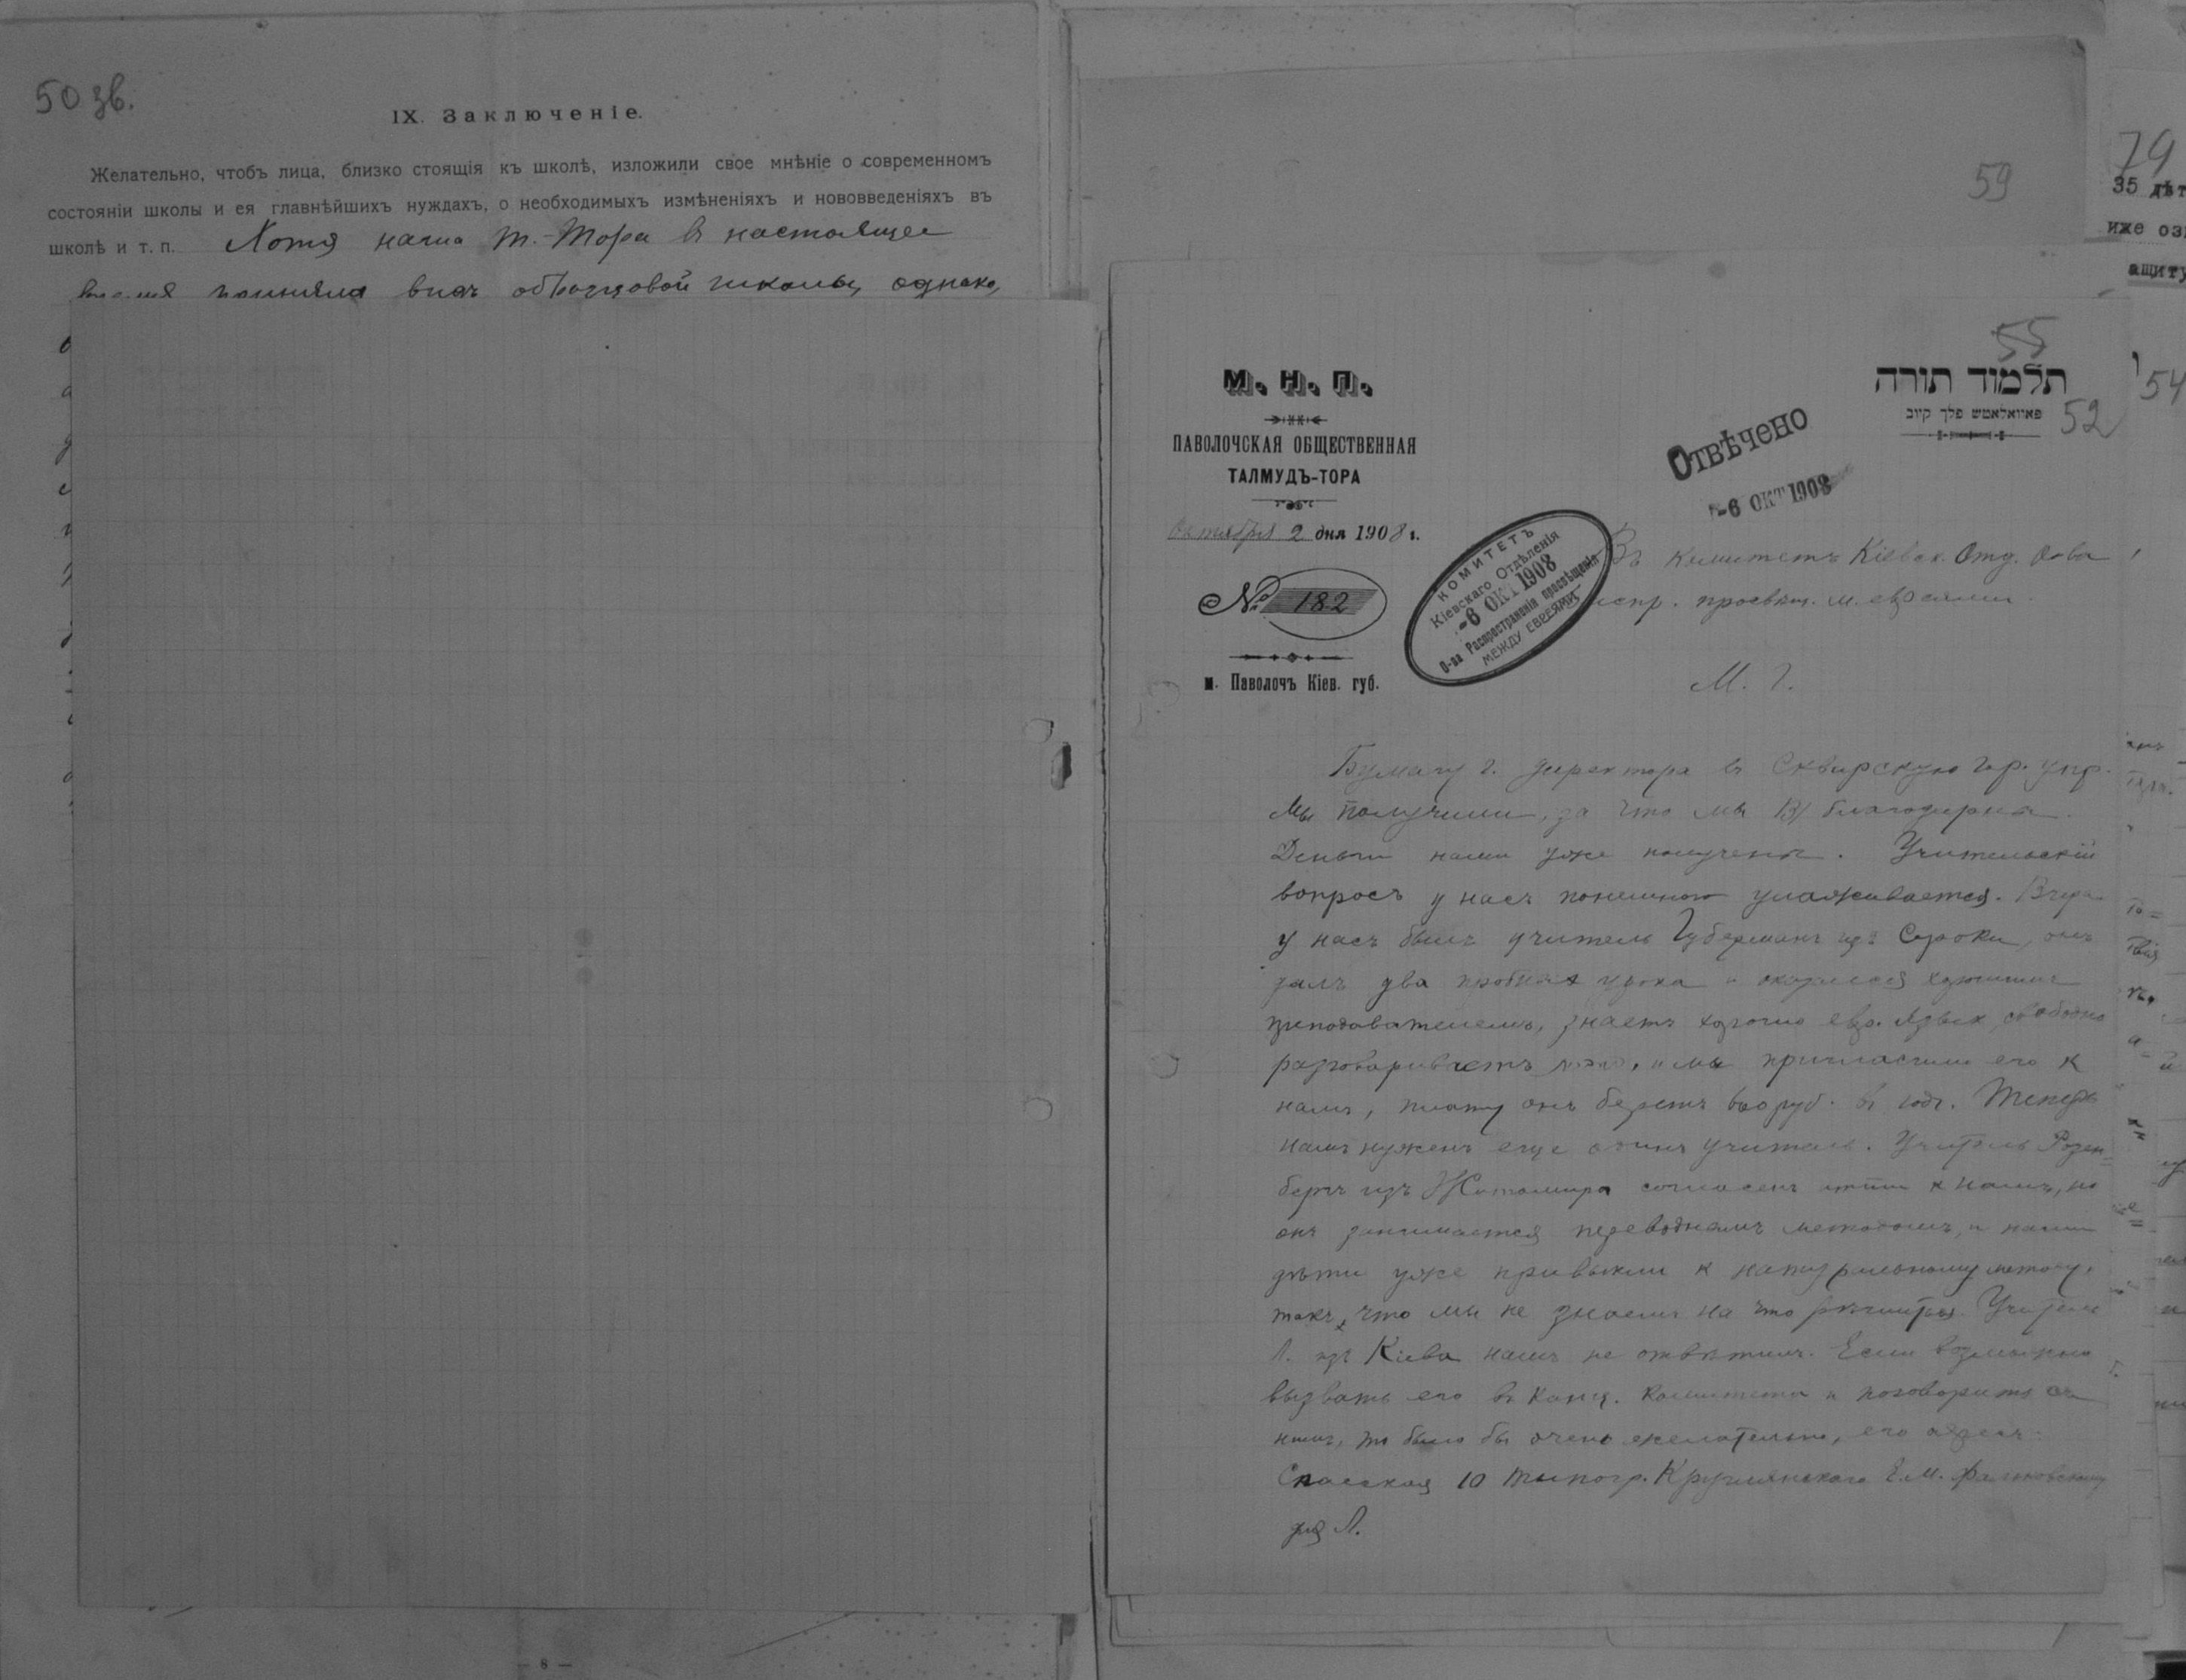 50 зв.
IX. Заключеніе.
Желательно, чтобъ лица, близко стоящія къ школѣ, изложили свое мнѣніе о современномъ
состояніи школы и ея главнѣйшихъ нуждахъ, о необходимыхъ измѣненіяхъ и нововведеніяхъ въ
школѣ и т. п. Хотя наша Т.-Тора в настоящее
время приняла видъ образцовой школы, однако,
— 8 —
59
79
35 дѣт
иже оз
ащиту
54
55
52
М. Н. П.
ПАВОЛОЧСКАЯ ОБЩЕСТВЕННАЯ
ТАЛМУДЪ-ТОРА
Октября 2 дня 1908 г.
№ 182
м. Паволочъ Кіев. губ.
תלמוד תורה
פאוואלאטש פלך קיוב
Отвѣчено
-6 ОКТ 1908
КОМИТЕТЪ
Кіевскаго Отдѣленія
-6 ОКТ 1908
О-ва Распространенія просвѣщенія
МЕЖДУ ЕВРЕЯМИ
Въ комитетъ Кіевск. Отд. О-ва
распр. просвѣщ. м. евреями.
М. Г.
Бумагу г. директора в Сквирскую гор. упр.
мы получили, за что мы благодарны.
Деньги нами уже получены. Учительскій
вопросъ у насъ понемного улаживается. Вчера
у насъ былъ учитель Губерманъ изъ Сороки, онъ
далъ два пробныхъ урока и оказался хорошимъ
преподавателемъ, знаетъ хорошо евр. языкъ свободно
разговариваетъ, и мы пригласили его к
намъ, плату онъ беретъ руб. в годъ. Теперь
намъ нуженъ еще одинъ учитель. Учитель Розен=
бергъ изъ Житомира согласенъ итти к намъ, но
онъ занимается переводнымъ методомъ, и наши
дѣти уже привыкли к натуральному методу,
такъ, что мы не знаемъ на что рѣшиться. Учитель
Л. изъ Кіева намъ не отвѣтилъ. Если возможно
вызвать его в канц. Комитета и поговорить съ
нимъ, то было бы очень желательно, его адресъ:
Спасская 10 типогр. Круглянскаго Е. М.
для Л.